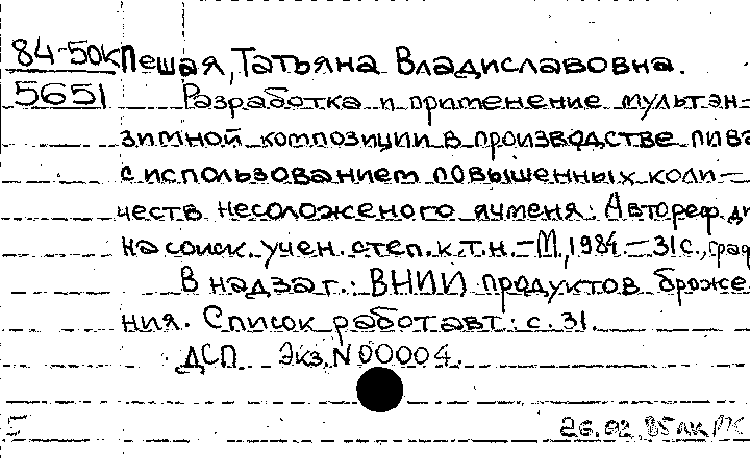 84-50к Пешая, Татьяна Владиславовна.
5651 Разработка и применение мультэн-
зимной композиции в производстве пива
с использованием повышенных коли-
честв несоложеного ячменя: Автореф. ди
на соиск. учен. степ. к.т.н. - М., 1984. - 31 с., граф
В надзаг.: ВНИИ продуктов броже-
ния. Список работ авт.: с. 31.
ДСП Экз. N 00004.
26.02.85